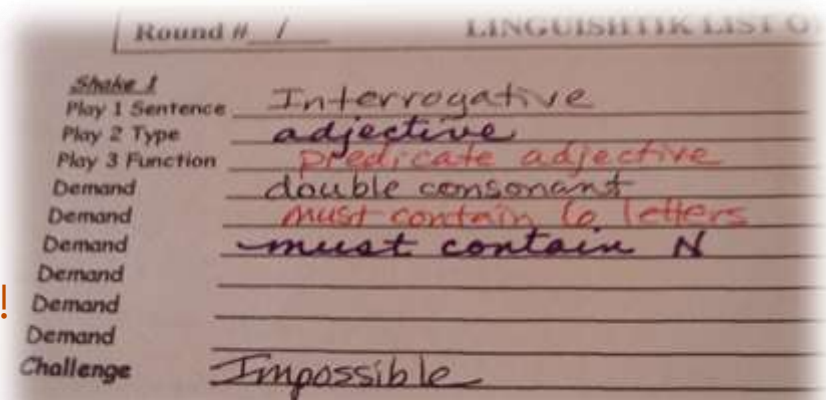 Round # 1 LINGUISHTIK LIST O
Shake 1
Play 1 Sentence Interrogative
Play 2 Type adjective
Play 3 Function predicate adjective
Demand double consonant
Demand must contain 6 letters
Demand must contain N
Demand
! Demand
Demand
Challenge Impossible